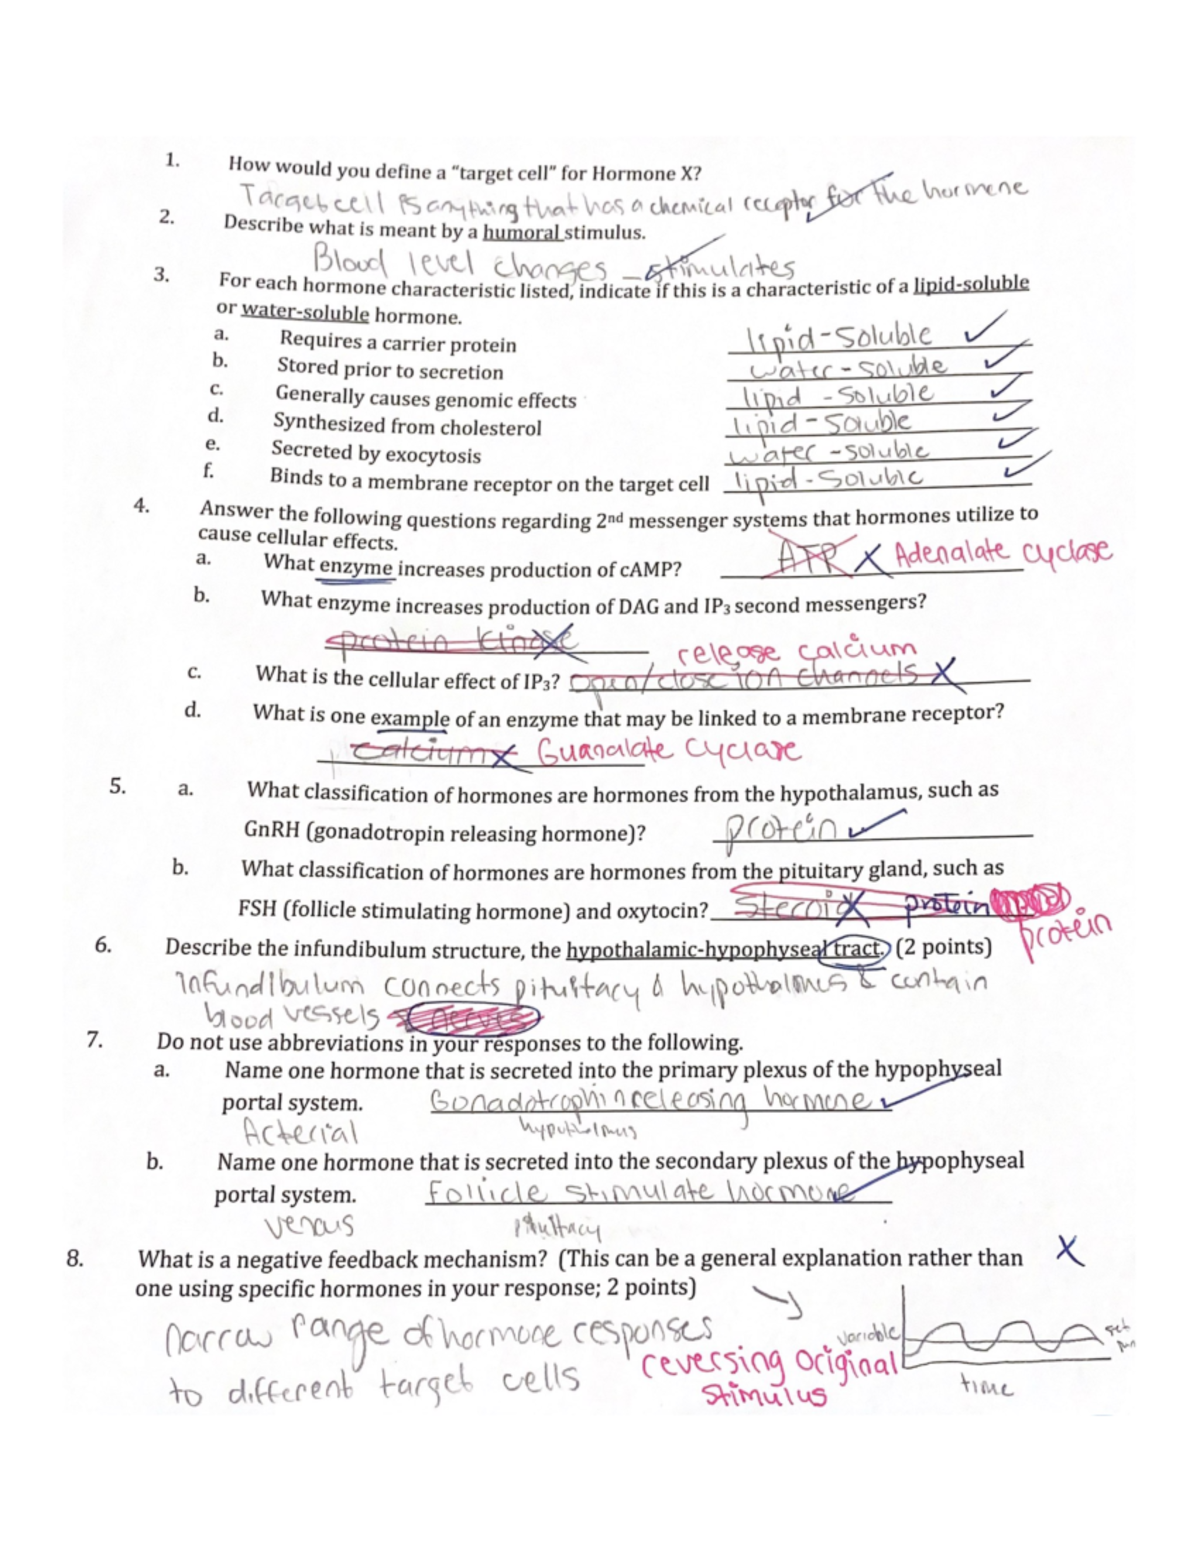 1. How would you define a “target cell” for Hormone X?
Target cell is anything that has a chemical receptor for the hormone
2. Describe what is meant by a humoral stimulus.
Blood level changes – stimulates
3. For each hormone characteristic listed, indicate if this is a characteristic of a lipid-soluble
or water-soluble hormone.
a. Requires a carrier protein lipid-soluble ✓
b. Stored prior to secretion water-soluble ✓
c. Generally causes genomic effects lipid-soluble ✓
d. Synthesized from cholesterol lipid-soluble ✓
e. Secreted by exocytosis water-soluble ✓
f. Binds to a membrane receptor on the target cell lipid-soluble ✓
4. Answer the following questions regarding 2nd messenger systems that hormones utilize to
cause cellular effects.
a. What enzyme increases production of cAMP? ATP X Adenalate cyclase
b. What enzyme increases production of DAG and IP3 second messengers?
protein kinase X
release calcium
c. What is the cellular effect of IP3? open/close ion channels X
d. What is one example of an enzyme that may be linked to a membrane receptor?
calcium X Guanalate cyclase
5. a. What classification of hormones are hormones from the hypothalamus, such as
GnRH (gonadotropin releasing hormone)? protein ✓
b. What classification of hormones are hormones from the pituitary gland, such as
FSH (follicle stimulating hormone) and oxytocin? Steroid X protein
protein
6. Describe the infundibulum structure, the hypothalamic-hypophyseal tract. (2 points)
Infundibulum connects pituitary & hypothalmus & contain
blood vessels & nerves
7. Do not use abbreviations in your responses to the following.
a. Name one hormone that is secreted into the primary plexus of the hypophyseal
portal system. Gonadotrophin releasing hormone ✓
Arterial hypothalmus
b. Name one hormone that is secreted into the secondary plexus of the hypophyseal
portal system. Follicle stimulate hormone ✓
venous pituitary
8. What is a negative feedback mechanism? (This can be a general explanation rather than X
one using specific hormones in your response; 2 points)
narrow range of hormone responses
to different target cells
reversing original
stimulus
variable
set
time